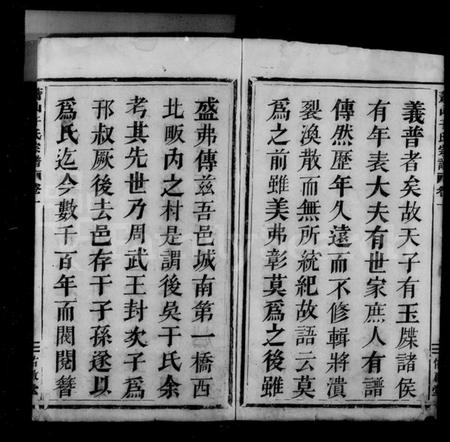 義普者矣故天子有玉牒諸侯
有年表大夫有世家庶人有譜
傳然歷年久遠而不修輯將潰
裂渙散而無所統紀故語云莫
為之前雖美弗彰莫為之後雖
盛弗傳茲吾邑城南第一橋西
北畈內之村是謂後吳干氏余
考其先世乃周武王封次子為
邗叔厥後去邑存干子孫遂以
為氏迄今數千百年而閥閱簪
蕭山干氏宗譜 卷一